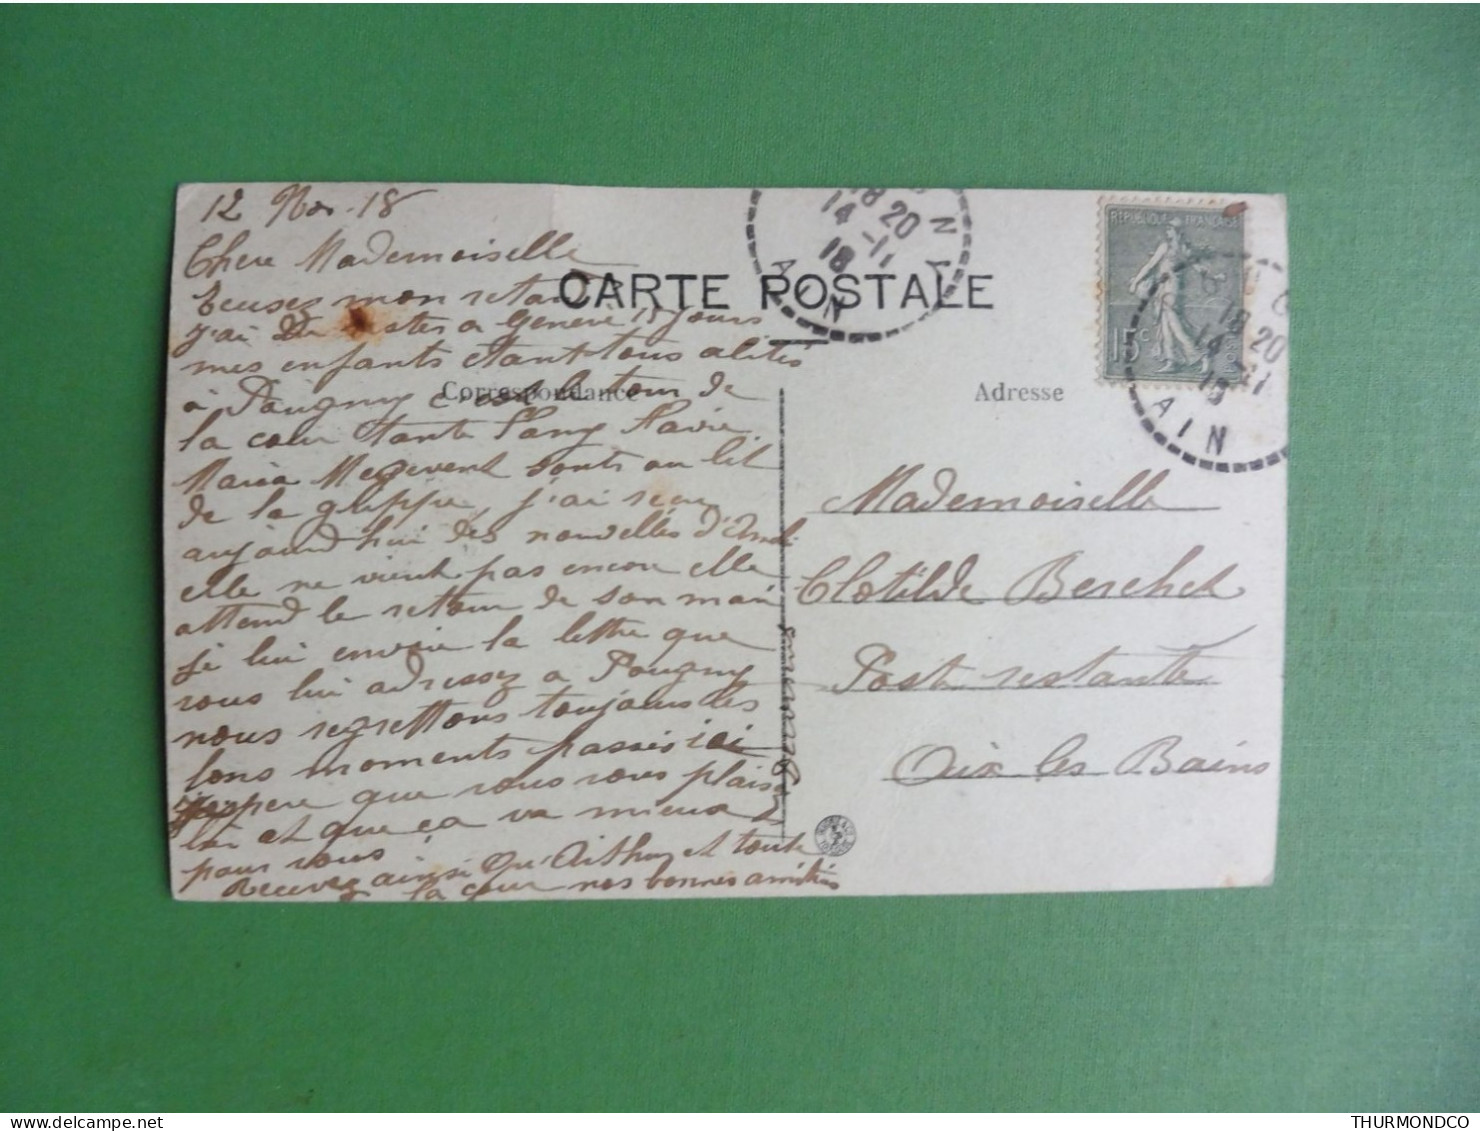 12 Nov. 18
Chere Mademoiselle
Ecusez mon retard
j'ai du rester a Genève 15 jours
mes enfants etant tous alités
à Pougny c'est le tour de
la cœur tante Fany Flavie
Maria Megevent sont au lit
de la grippe, j'ai reçu
aujourd'hui des nouvelles d'
elle ne vient pas encore elle
attend le retour de son mari
je lui envoie la lettre que
vous lui adressez a Pougny
nous regrettons toujours les
bons moments passés ici
j'espere que vous vous plaisez
la et que ça va mieux
pour vous
Recevez ainsi Arthur et toute
la cour nos bonnes amitiés
CARTE POSTALE
Correspondance
Adresse
Mademoiselle
Clotilde Berchet
Post restante
Aix les Bains
REPUBLIQUE FRANÇAISE
15c
18 20
14 -11
18
AIN
18 20
14 -11
18
AIN
THURMONDCO